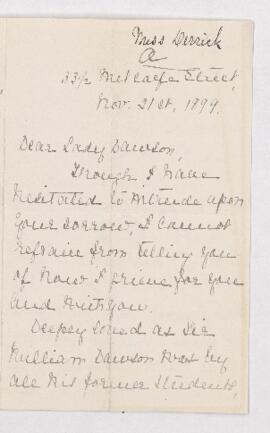 Miss Derrick
a
33½ Metcalfe Street,
Nov. 21st, 1899.
Dear Lady Dawson,
Though I have
hesitated to intrude upon
your sorrow, I cannot
refrain from telling you
of how I grieve for you
and with you.
Deeply loved as Sir
William Dawson was by
all his former students,